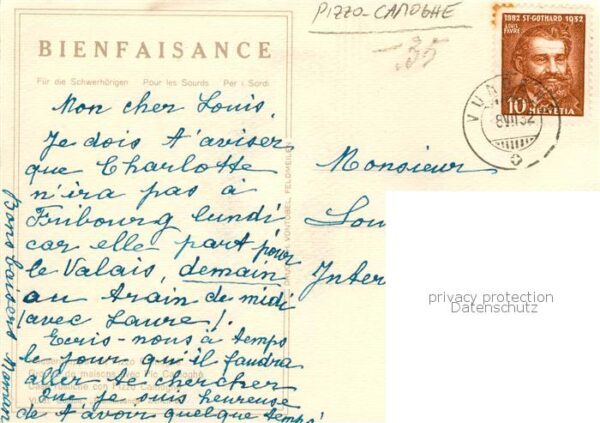 PIZZO-CAMOGHE
-.35
BIENFAISANCE
Für die Schwerhörigen Pour les Sourds Per i Sordi
1882 ST-GOTHARD 1932
LOUIS FAVRE
10 HELVETIA
8.VII.32
Mon cher Louis,
Je dois t'aviser
que Charlotte
n'ira pas à
Fribourg lundi
car elle part pour
le Valais, demain
au train de midi
(avec Laure).
Ecris-nous à temps
le jour qu'il faudra
aller te chercher
Que je suis heureuse
de t'avoir quelque temps!
Bons baisers Maman
Monsieur
Lou
Inter
VONTOBEL, FELDMEILEN
privacy protection
Datenschutz